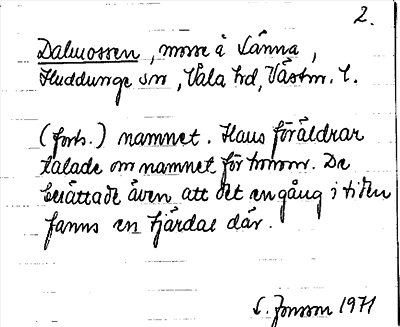 2.
Dalmossen, mosse å Länna,
Huddunge sn, Våla hd, Västm. l.
(forts.) namnet. Hans föräldrar
talade om namnet för honom. De
berättade även att det en gång i tiden
fanns en fjärdal där.
S. Jonsson 1971